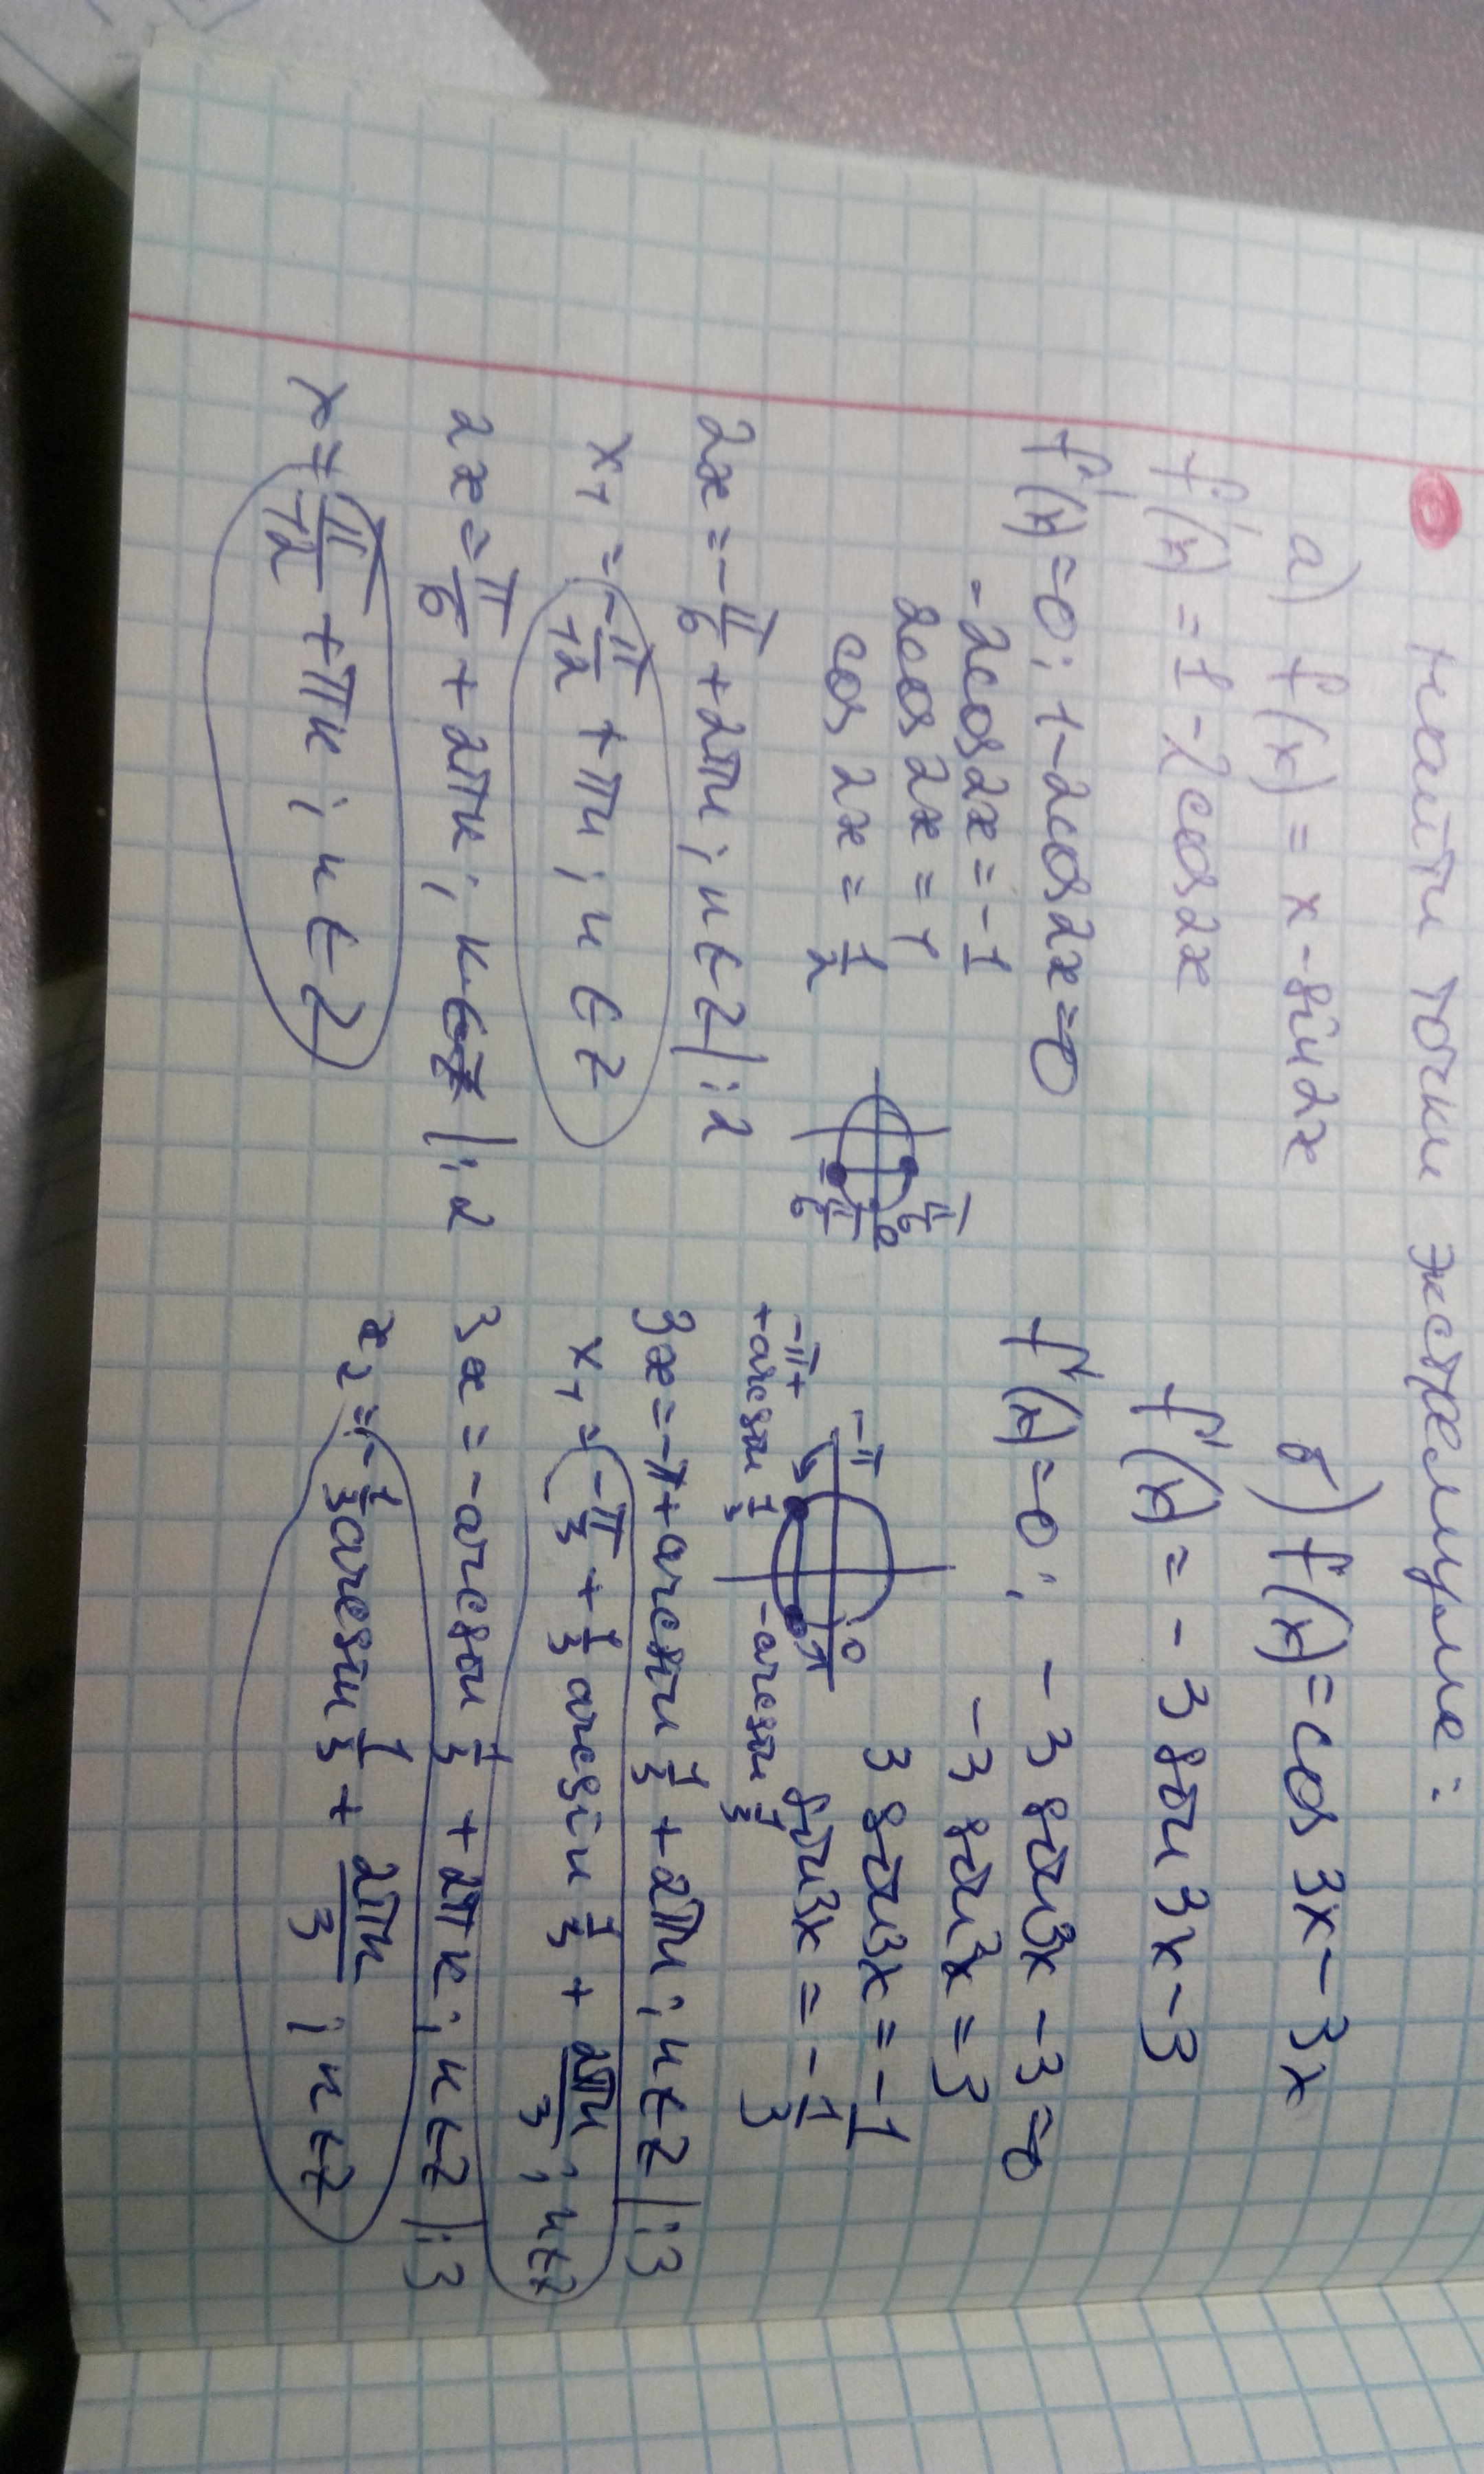 Найти точки экстремума:
а) f(x) = x - sin2x
f'(x) = 1 - 2cos2x
f'(x)=0; 1-2cos2x=0
-2cos2x=-1
2cos2x=1
cos 2x = 1/2
π/6
0
-π/6
2x = -π/6 + 2πn; n∈Z |:2
x₁ = -π/12 + πn; n∈Z
2x = π/6 + 2πn; n∈Z |:2
x = π/12 + πn; n∈Z
б) f(x) = cos 3x - 3x
f'(x) = -3sin3x-3
f'(x)=0; -3sin3x-3=0
-3sin3x=3
3sin3x=-1
sin3x = -1/3
-π
0
π
-π+
+arcsin 1/3
-arcsin 1/3
3x = -π + arcsin 1/3 + 2πn; n∈Z |:3
x₁ = -π/3 + 1/3 arcsin 1/3 + 2πn/3; n∈Z
3x = -arcsin 1/3 + 2πn; n∈Z |:3
x₂ = -1/3 arcsin 1/3 + 2πn/3; n∈Z